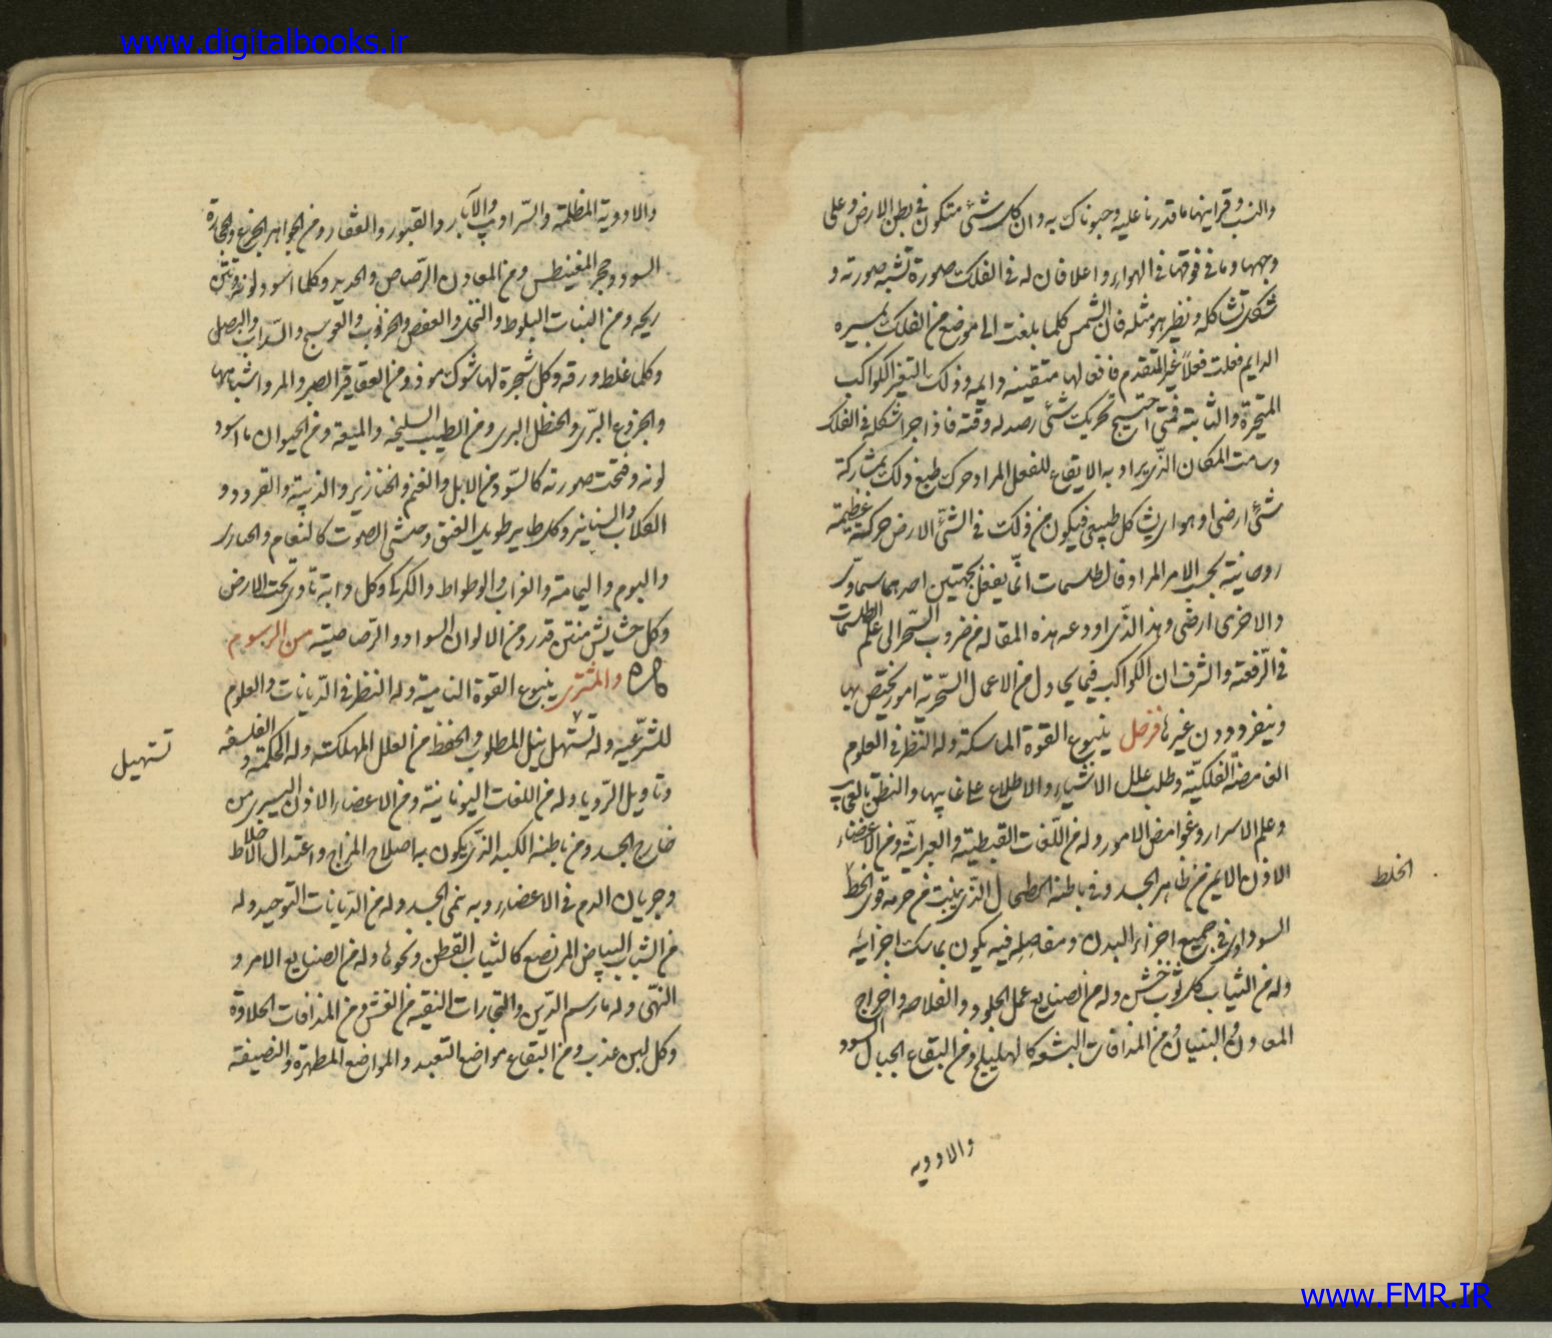 www.digitalbooks.ir
والنسب وقراينها ما قدرنا عليه وحبوناك به وان كل شئ متكون فى بطن الارض وعلى
وجهها وما فى فوقها فى الهواء واعلا فان له فى الفلك صورة تشبه صورته و
شكل تشاكله ونظير هو مثله فان الشمس كلما بلغت الى موضع من الفلك بمسيره
الدايم فعلت فعلاً غير المتقدم فافعالها متفننه دايمه وذلك التغير الكواكب
المتحيرة والثابتة فمتى احتيج تحريك شئ رصد له وقته فاذا جرا شكله فى الفلك
وسامت المكان الذى يراد به الايقاع للفعل المراد حرك طبع ذلك بمشاركة
شئ ارضى او هوائى يشاكل طبيعى فيكون من ذلك فى الشئ الارض حركة عظيمة
روحانية بحسب الامر المراد فالطلسمات انما يفعل بجهتين احدهما سماوى
والاخرى ارضى وهذا الذى اودعه هذه المقاله من ضروب السحر الى علم الطلسمات
فى الرفعة والشرف ان الكواكب فيما يحاول من الاعمال السحرية امور يختص بها
وينفرد دون غيرها فزحل ينبوع القوة الماسكة وله النظر فى العلوم
الغامضة الفلكية وطلب علل الاشياء والاطلاع على غايبها والنطق بالعجايب
وعلم الاسرار وغوامض الامور وله من اللغات القبطية والعبرانية ومن الاعضاء
الاذن الايمن من ظاهر الجسد وفى باطنه الطحال الذى ينبت من جرمه قوى الخط
الخلط
السوداوى فى جميع اجزاء البدن ومفاصله فيه يكون تماسك اجزائه
وله من الثياب كل ثوب خشن وله من الصنايع عمل الجلود والفلاحه واخراج
المعادن والبنيان ومن المذاقات البشعه كالهليلج ومن البقاع الجبال السود
والادويه
والاودية المظلمة والسراديب والآبار والقبور والقفار ومن الجواهر الجزع والحجارة
السود وحجر المغنيطس ومن المعادن الرصاص والحديد وكلما اسود لونه ونتن
ريحه ومن النبات البلوط والنخل والعفص والخرنوب والعوسج والسداب والبصل
وكلما غلظ ورقه وكل شجرة لها شوك موذ ومن العقاقير الصبر والمر واشباهها
والخروع البرى والحنظل البرى ومن الطيب السليخه والميعة ومن الحيوان ما اسود
لونه وقبحت صورته كالسود من الابل والغنم والخنازير والذيبة والقرود و
الكلاب والسنانير وكل طاير طويل العنق وحشى الصوت كالنعام والحبارى
والبوم واليمامة والغراب والوطواط والكركى وكل دابة تاوى تحت الارض
وكل حشيش منتن قذر ومن الالوان السواد والرصاصية من الرسوم
والمشترى ينبوع القوة النامية وله النظر فى الديانات والعلوم
للشرعيه وله تستهل بنيل المطلوب والحفظ من العلل المهلكة وله الحكمة و الفلسفه
تسهيل
وتاويل الرويا وله من اللغات اليونانية ومن الاعضاء الاذن اليسرى من
خارج الجسد ومن باطنه الكبد الذى يكون به اصلاح المزاج واعتدال الاخلاط
وجريان الدم فى الاعضاء وبه نمى الجسد وله من الديانات التوحيد وله
من الثياب البياض المرتفع كالثياب القطن ونحوها وله من الصنايع الامر و
النهى وله ما رسم الدين والتجارات النقيه من الغش ومن المذاقات الحلاوة
وكل لبن عذب ومن البقاع مواضع التعبد والمواضع المطهرة والنصيفة
www.FMR.IR